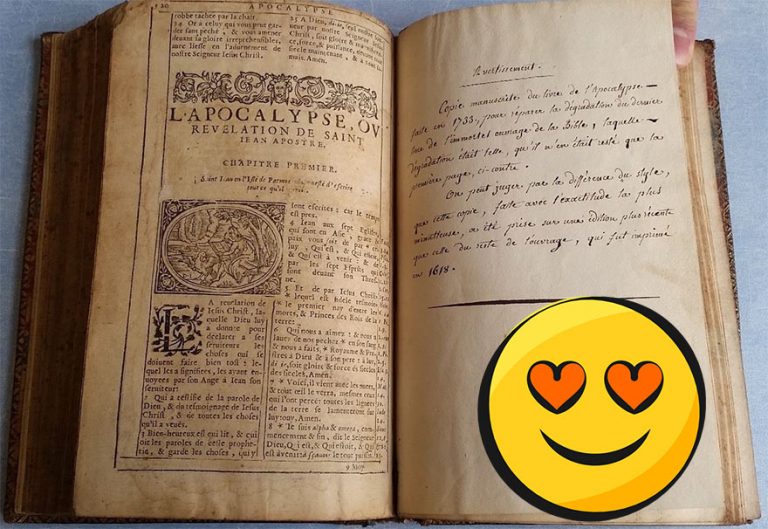 520 APOCALYPSE
robbe tachée par la chair.
24 Or à celuy qui vous peut gar-
der sans peché, & vous amener
devant sa gloire irreprehensibles,
avec liesse en l'advenement de
nostre Seigneur Iesus Christ.
25 A Dieu,
Seigneur
Christ, soit gloire & ma
ce, force, & puissance,
tous siecles. Amen.
L'APOCALYPSE, OV
REVELATION DE SAINT
IEAN APOSTRE.
CHAPITRE PREMIER.
1 Saint Iean en l'Isle de Parmos d'escrire
tout ce qu'il
LA revelation de
Iesus Christ, la-
quelle Dieu luy
a donnée pour
declarer à ses
serviteurs les
choses qui se
doivent faire bien tost: les-
quel les a signifiées, les ayant en-
voyees par son Ange à Iean son
serviteur:
2 Qui a testifié de la parole de
Dieu, & du tesmoignage de Iesus
Christ, & de toutes les choses
qu'il a veuës.
3 Bien-heureux est qui lit, & qui
oit les paroles de ceste prophe-
tie, & garde les choses, qui y
sont escrites: car le temps
est pres.
4 Iean aux sept Eglises
qui sont en Asie, grace &
paix vous soit de par
luy, Qui est, & Qui estoit,
& Qui est à venir: & de
par les sept Esprits qui
sont devant son Throsne.
5 Et de par Iesus Christ,
* lequel est fidele tesmoin,
* le premier nay d'entre les
morts, & Princes des Rois de la
terre:
6 Qui nous a aimez: & nous a
lauez de nos pechez * en son sang
& nous a faits * Royaume & Pre-
stres à Dieu & à son pere: à luy
di-je, soit gloire & force és siecles
des siecles, Amen.
7 * Voici, il vient avec les nuees,
& tout œil le verra, mesmes ceux
qui l'ont percé: toutes les lignees
de la terre se lamenteront sur
luy: ouy, Amen.
8 * Ie suis alpha & omega, com-
mencement & fin, dit le Seigneur
Dieu, Qui est, & Qui estoit, & Qui
est à venir à sçavoir le tout puissant.
9 Moy
Avertissement.
Copie manuscrite du livre de l'Apocalypse
faite en 1733, pour réparer la dégradation du dernier
livre de l'immortel ouvrage de la Bible, laquelle
dégradation était telle, qu'il n'en était resté que la
première page, ci-contre.
On peut juger par la différence du style,
que cette copie, faite avec l'exactitude la plus
minutieuse, a été prise sur une édition plus récente
que celle du reste de l'ouvrage, qui fut imprimé
en 1618.